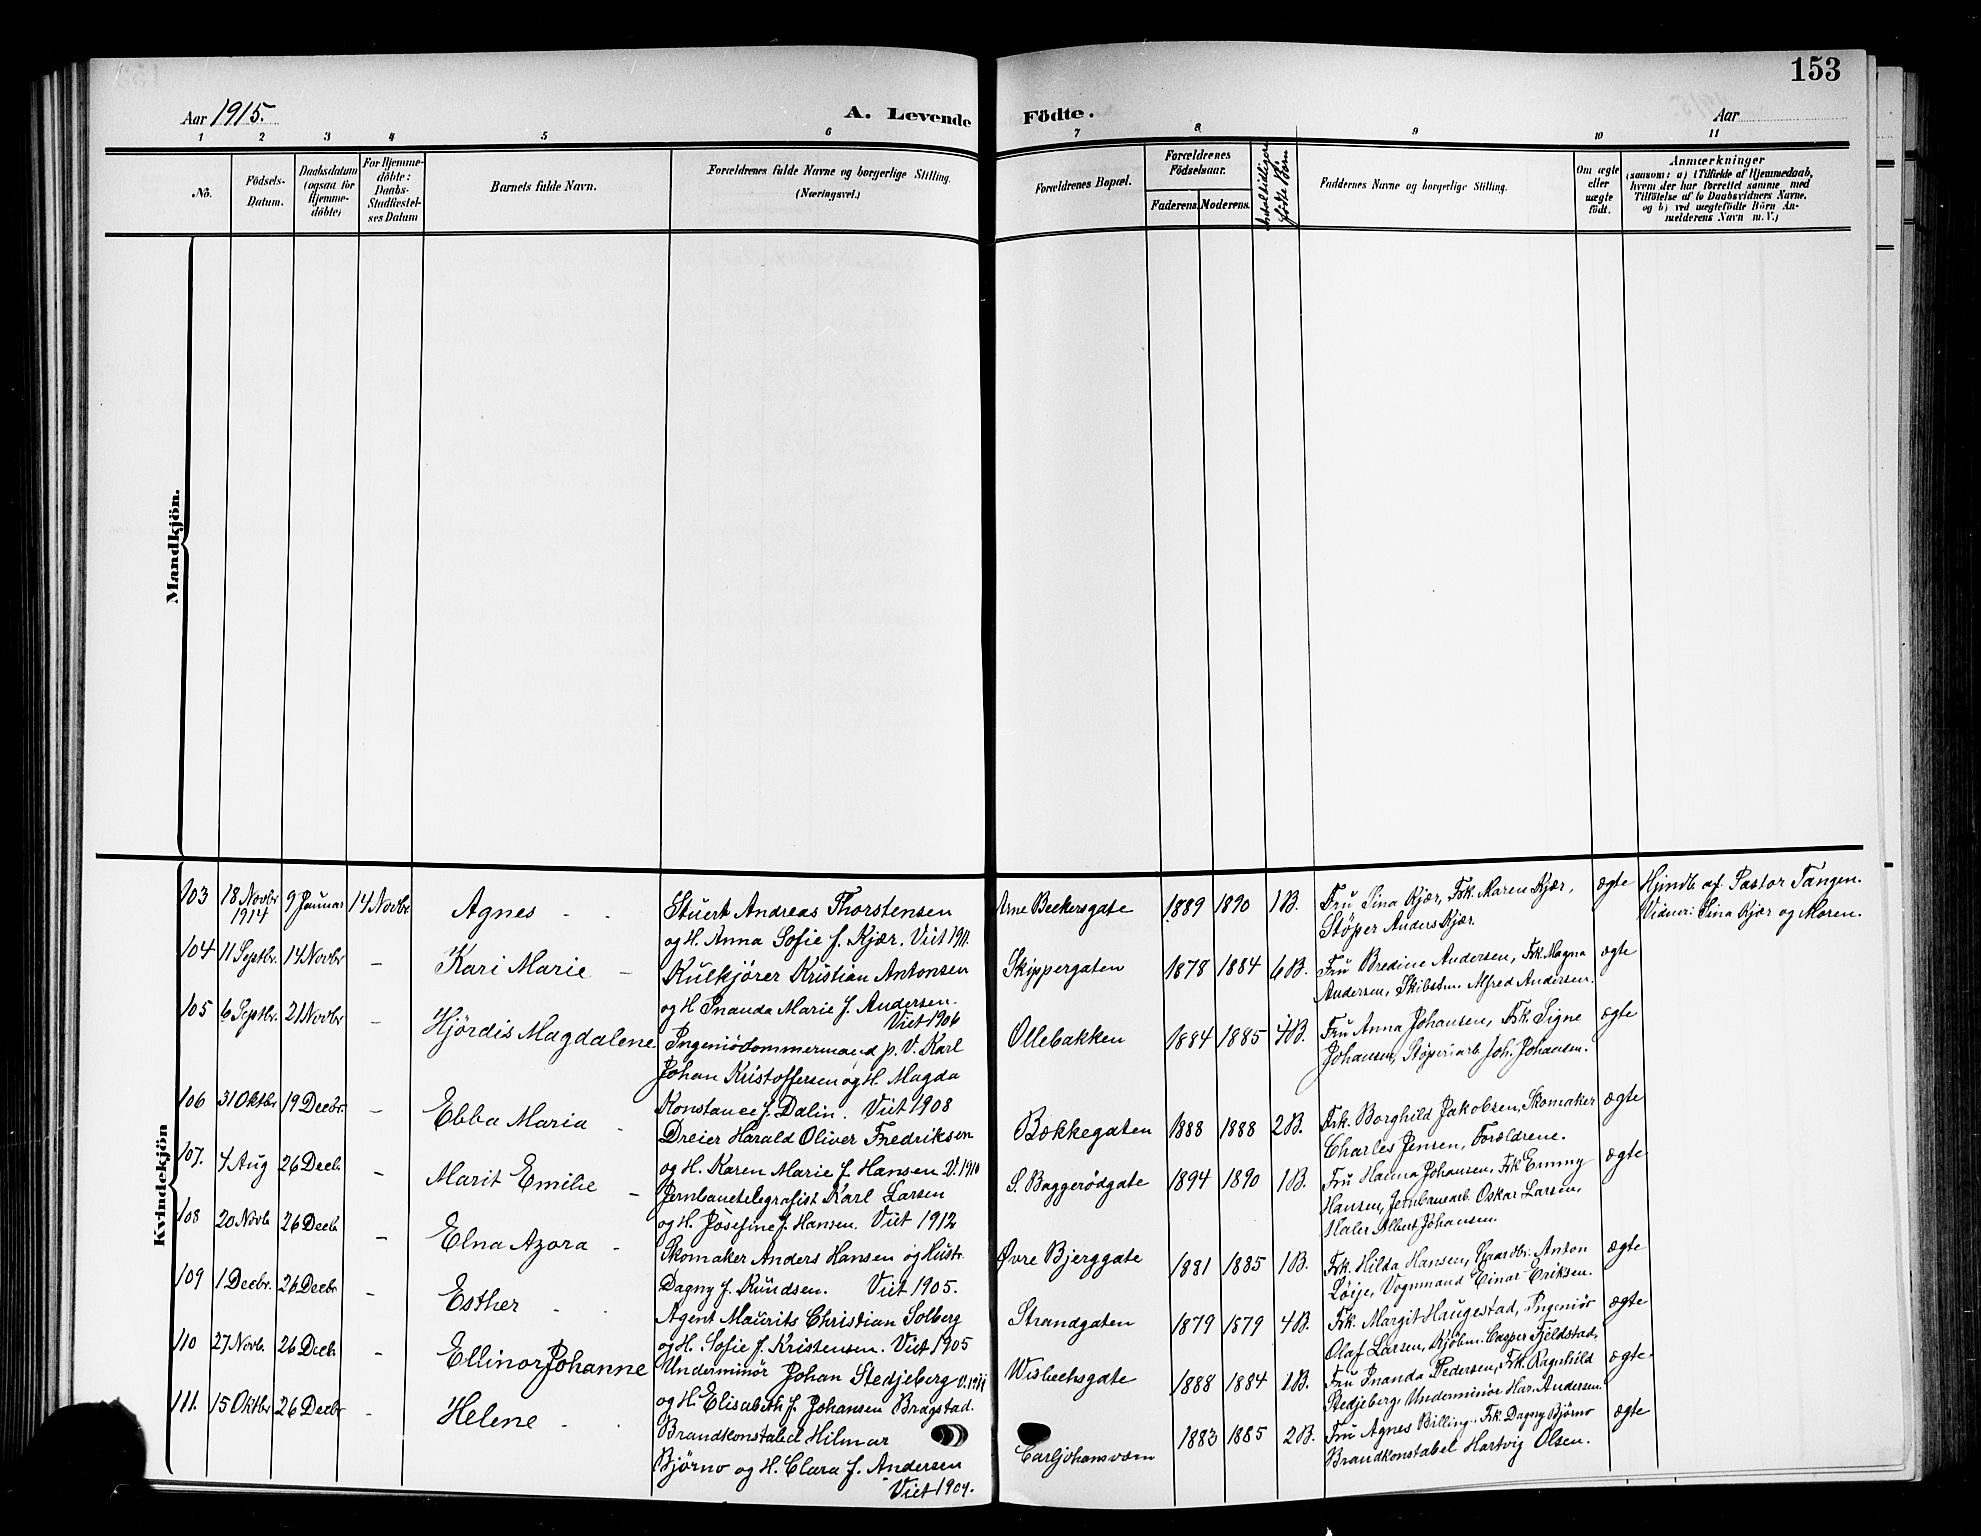 153
Aar 1915.
A. Levende Födte.
Aar
1 2 3 4 5 6 7 8 9 10 11
Nô.
Födsels-Datum.
Daabsdatum (ogsaa for Hjemme-döbte)
For Hjemme-döbte: Daabs-Stadfæstel-ses Datum
Barnets fulde Navn.
Forældrenes fulde Navne og borgerlige Stilling. (Næringsvei.)
Forældrenes Bopæl.
Forældrenes Födselsaar.
Faderens. Moderens.
Antal tidligere fødte Børn
Faddernes Navne og borgerlige Stilling.
Om ægte eller uægte födt.
Anmærkninger
(saasom: a) i Tilfælde af Hjemmedaab,
hvem der har forrettet samme med
Tilföielse af to Daabsvidners Navne.
og b) ved uægtefödte Börn An-
melderens Navn m. V.)
Mandkjön.
Kvindekjön
103 18 Novbr 1914 9 Januar 14 Novbr Agnes - -
Stuert Andreas Thorstensen
og H. Anna Sofie f. Kjær. Viet 1911.
Arne Beekersgate 1889 1890 1 B.
Fru Sina Kjær, Frk. Maren Kjær,
Støper Anders Kjær.
ægte
Hjmdb. af Pastor Tangen.
Vidner: Sina Kjær og Maren.
104 11 Septbr. 14 Novbr - Kari Marie -
Kulkjörer Kristian Antonsen
og H Inanda Marie f. Andersen.
Viet 1906
Skippergaten 1878 1884 6 B.
Fru Bredine Andersen, Frk. Magna
Andersen, Skibstm. Alfred Andersen.
ægte
105 6 Septbr. 21 Novbr - Hjördis Magdalene
Ingeniödommermand p. V. Karl
Johan Kristoffersen og H. Magda
Konstance f. Dalin. Viet 1908
Ollebakken 1884 1885 4 B.
Fru Anna Johansen, Frk. Signe
Johansen, Støperiarb. Joh. Johansen.
ægte
106 31 Oktbr 19 Decbr. - Ebba Maria -
Dreier Harald Oliver Fredriksen
og H. Karen Marie f. Hansen. V. 1910
Bækkegaten 1888 1888 2 B.
Frk. Borghild Jakobsen, Skomaker
Charles Jensen, Forældrene.
ægte
107. 4 Aug 26 Decb. - Marit Emilie -
Jernbanetelegrafist Karl Larsen
og H. Josefine f. Hansen. Viet 1912
S. Baggerödgate 1894 1890 1 B.
Fru Hanna Johansen, Frk Emmy
Hansen, Jernbanearb. Oskar Larsen,
Maler Albert Johansen.
ægte
108 20 Novb. 26 Decb. - Elna Azora -
Skomaker Anders Hansen og Hustr.
Dagny f. Knudsen. Viet 1905.
Øvre Bjerggate 1881 1885 1 B.
Frk. Hilda Hansen, Gaardbr. Anton
Løije, Vognmand Einar Eriksen.
ægte
109 1 Decbr. 26 Decbr - Esther - -
Agent Maurits Christian Solberg
og H. Sofie f. Kristensen. Viet 1905
Strandgaten 1879 1879 4 B.
Frk. Margit Haugestad, Ingeniör
Olaf Larsen, Kjöbm. Casper Fjeldstad.
ægte
110 27 Novb. 26 Decb. - Ellinor Johanne
Underminör Johan Stedjeberg V. 1911
og H. Elisabeth f. Johansen Bragstad.
Wisbechsgate 1888 1884 1 B.
Fru Inanda Pedersen, Frk. Ragnhild
Stedjeberg, Underminör Har. Andersen.
ægte
111. 15 Oktbr 26 Decbr - Helene - -
Brandkonstabel Hilmar
Bjørno og H. Clara f. Andersen
Viet 1909.
Carljohansværn 1883 1885 2 B.
Fru Agnes Billing. Frk. Dagny Bjørno
Brandkonstabel Hartvig Olsen.
ægte